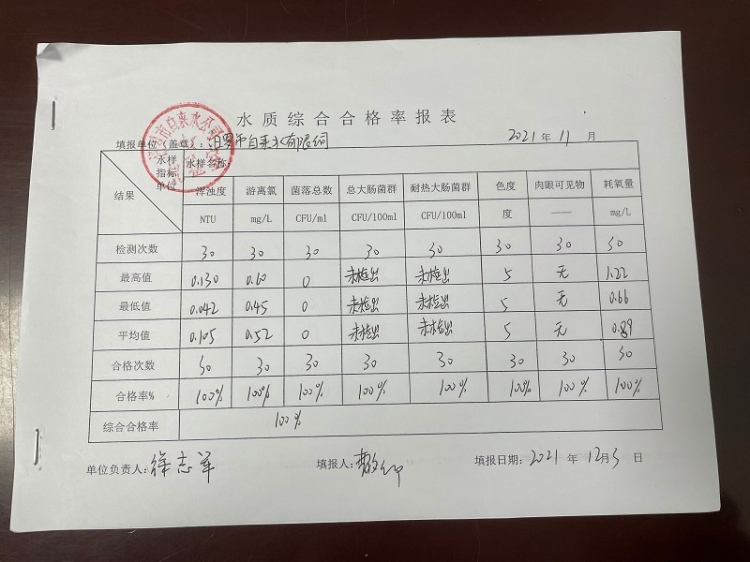 水质综合合格率报表
填报单位（盖章）：汨罗市自来水有限公司 2021 年 11 月
水样 水样名称：
指标
单位
结果 浑浊度 游离氯 菌落总数 总大肠菌群 耐热大肠菌群 色度 肉眼可见物 耗氧量
NTU mg/L CFU/ml CFU/100ml CFU/100ml 度 —— mg/L
检测次数 30 30 30 30 30 30 30 30
最高值 0.130 0.60 0 未检出 未检出 5 无 1.22
最低值 0.042 0.45 0 未检出 未检出 5 无 0.66
平均值 0.105 0.52 0 未检出 未检出 5 无 0.89
合格次数 30 30 30 30 30 30 30 30
合格率% 100% 100% 100% 100% 100% 100% 100% 100%
综合合格率 100%
单位负责人：徐志军 填报人： 填报日期：2021 年 12月3 日